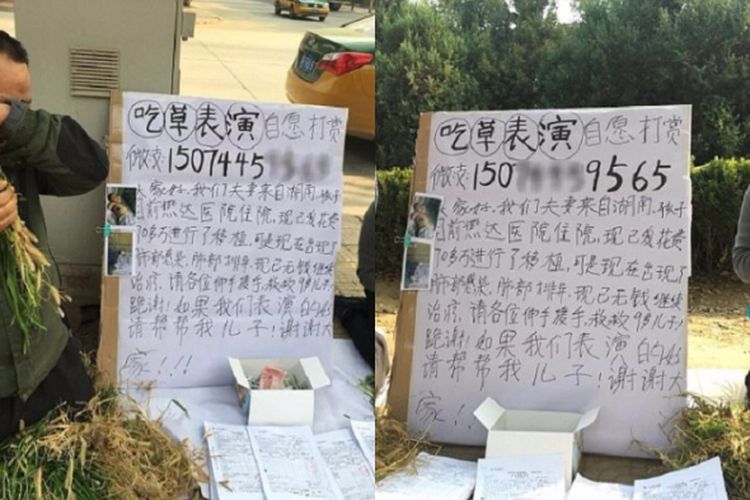 吃草表演 自愿打赏
微支:1507445
大家好,我们夫妻来自湖南,孩子
目前燕达医院住院,现已花费
70多万进行了移植,可是现在出现了
肺部感染,肺部排斥,现已无钱继续
治疗,请各位伸手援手,救救9岁儿子!
跪谢!如果我们表演的好
请帮帮我儿子!谢谢大
家!!!
吃草表演 自愿打赏
微支:150 9565
大家好,我们夫妻来自湖南,孩子
目前燕达医院住院,现已花费
70多万进行了移植,可是现在出现了
肺部感染,肺部排斥,现已无钱继续
治疗,请各位伸手援手,救救9岁儿子!
跪谢!如果我们表演的好
请帮帮我儿子!谢谢大
家!!!